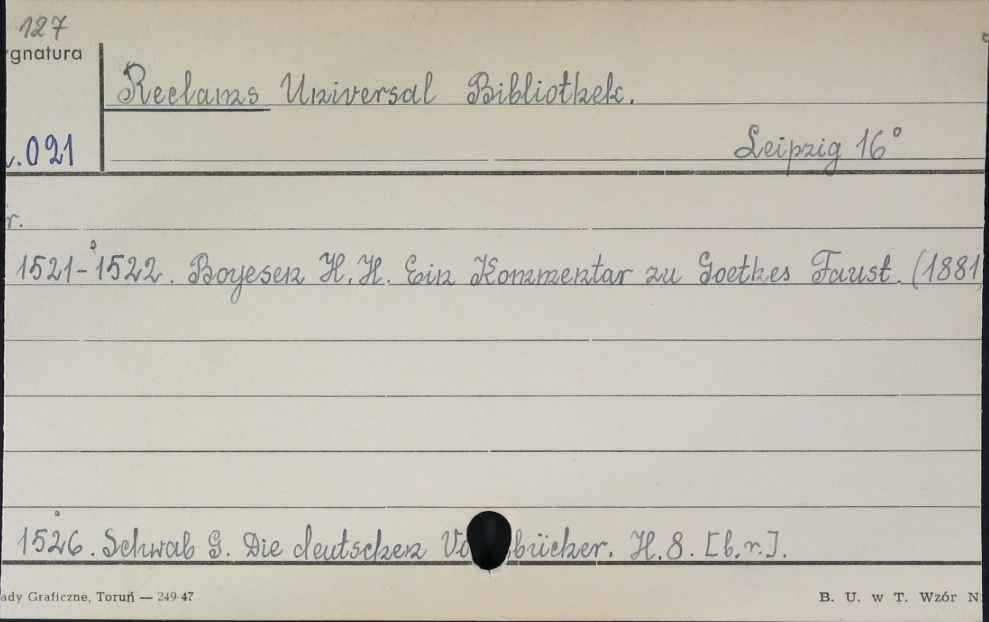 127
gnatura
Reclams Universal Bibliothek.
.021
Leipzig 16°
r.
1521-1522. Boyesen H.H. Ein Kommentar zu Goethes Faust. (1881
1526. Schwab G. Die deutschen Vo bücher. H.8. [b.r.].
ady Graficzne, Toruń — 249-47
B. U. w T. Wzór N